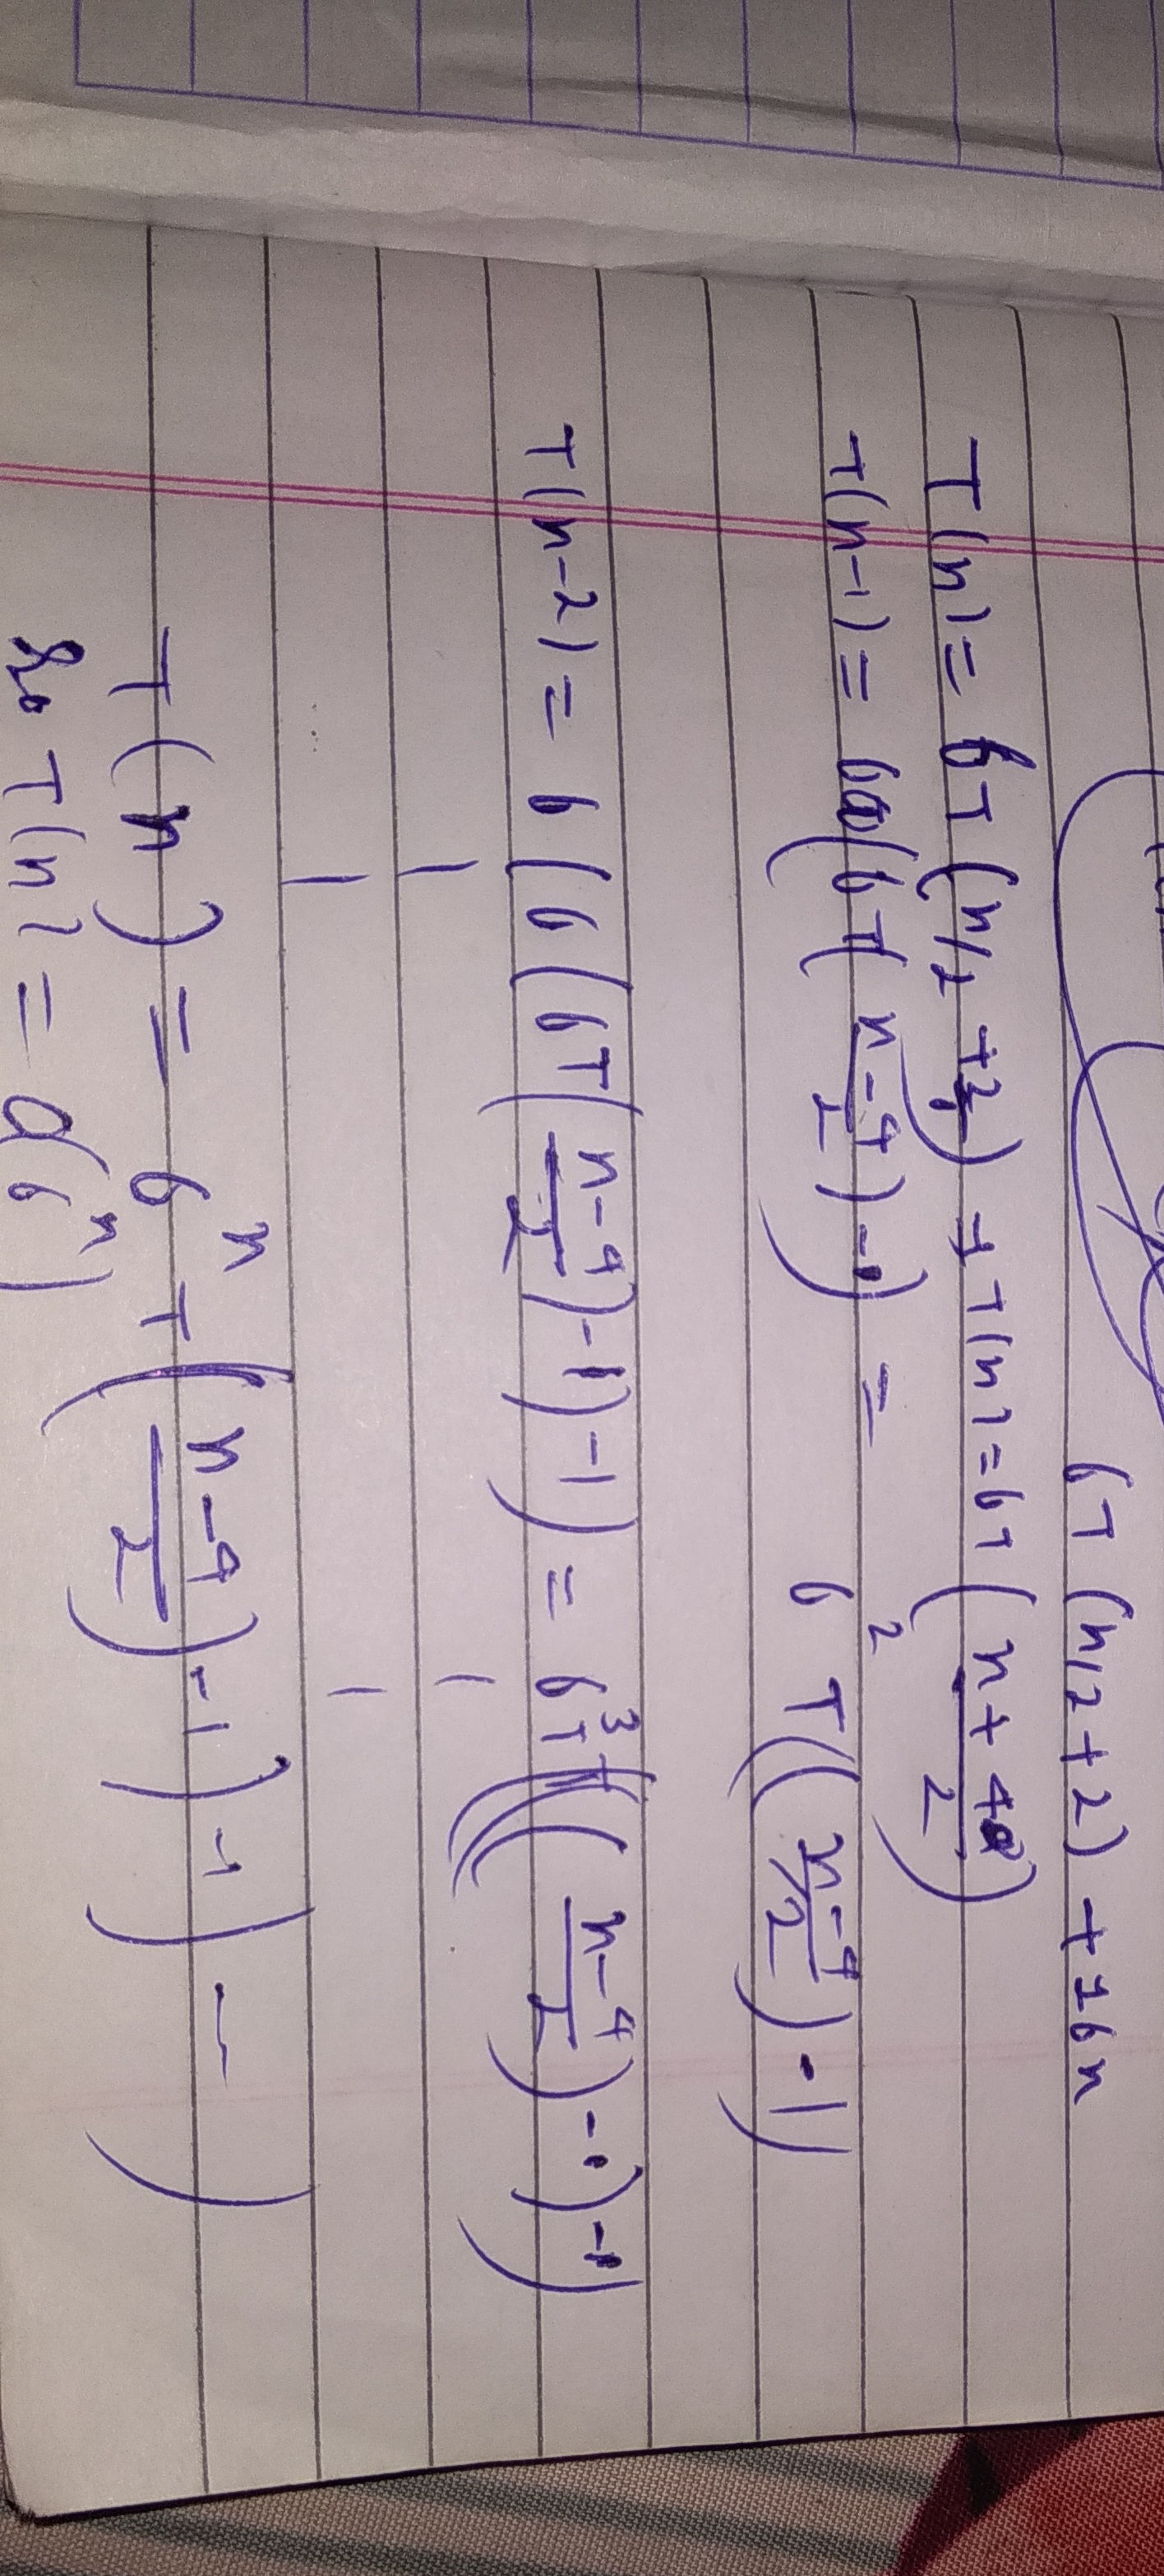 6T (n/2 + 2) + 16n
T(n) = 6T (n/2 + 2) → T(n) = 6T (n + 4 / 2)
T(n-1) = 6 (6T( n-4 / 2 ) -1) = 6² T(( n-4 / 2 ) - 1)
T(n-2) = 6 (6 (6T( n-4 / 2 ) -1) -1) = 6³ T((( n-4 / 2 ) -1) -1)
T(n) = 6ⁿ T (( n-4 / 2 ) -1) -1) — )
So T(n) = O(6ⁿ)